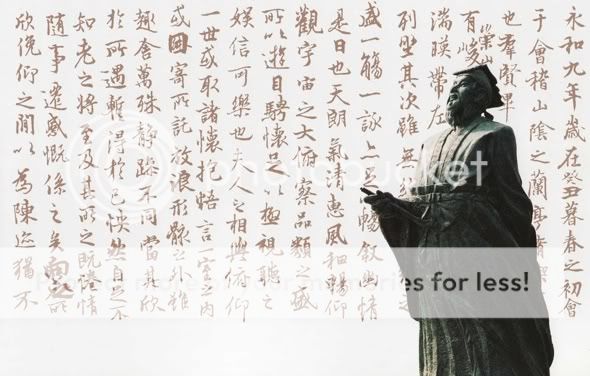 永和九年歲在癸丑暮春之初會
于會稽山陰之蘭亭脩禊
也羣賢畢
有崇山峻
湍暎帶左
列坐其次雖無
盛一觴一詠亦足以暢敘幽情
是日也天朗氣清惠風和暢仰
觀宇宙之大俯察品類之盛
所以遊目騁懷足以極視聽之
娛信可樂也夫人之相與俯仰
一世或取諸懷抱悟言一室之內
或因寄所託放浪形骸之外雖
趣舍萬殊靜躁不同當其欣
於所遇暫得於己怏然自足不
知老之將至及其所之既惓情
隨事遷感慨係之矣向之所
欣俛仰之閒以為陳迹猶不
photobucket
Protect more of your memories for less!